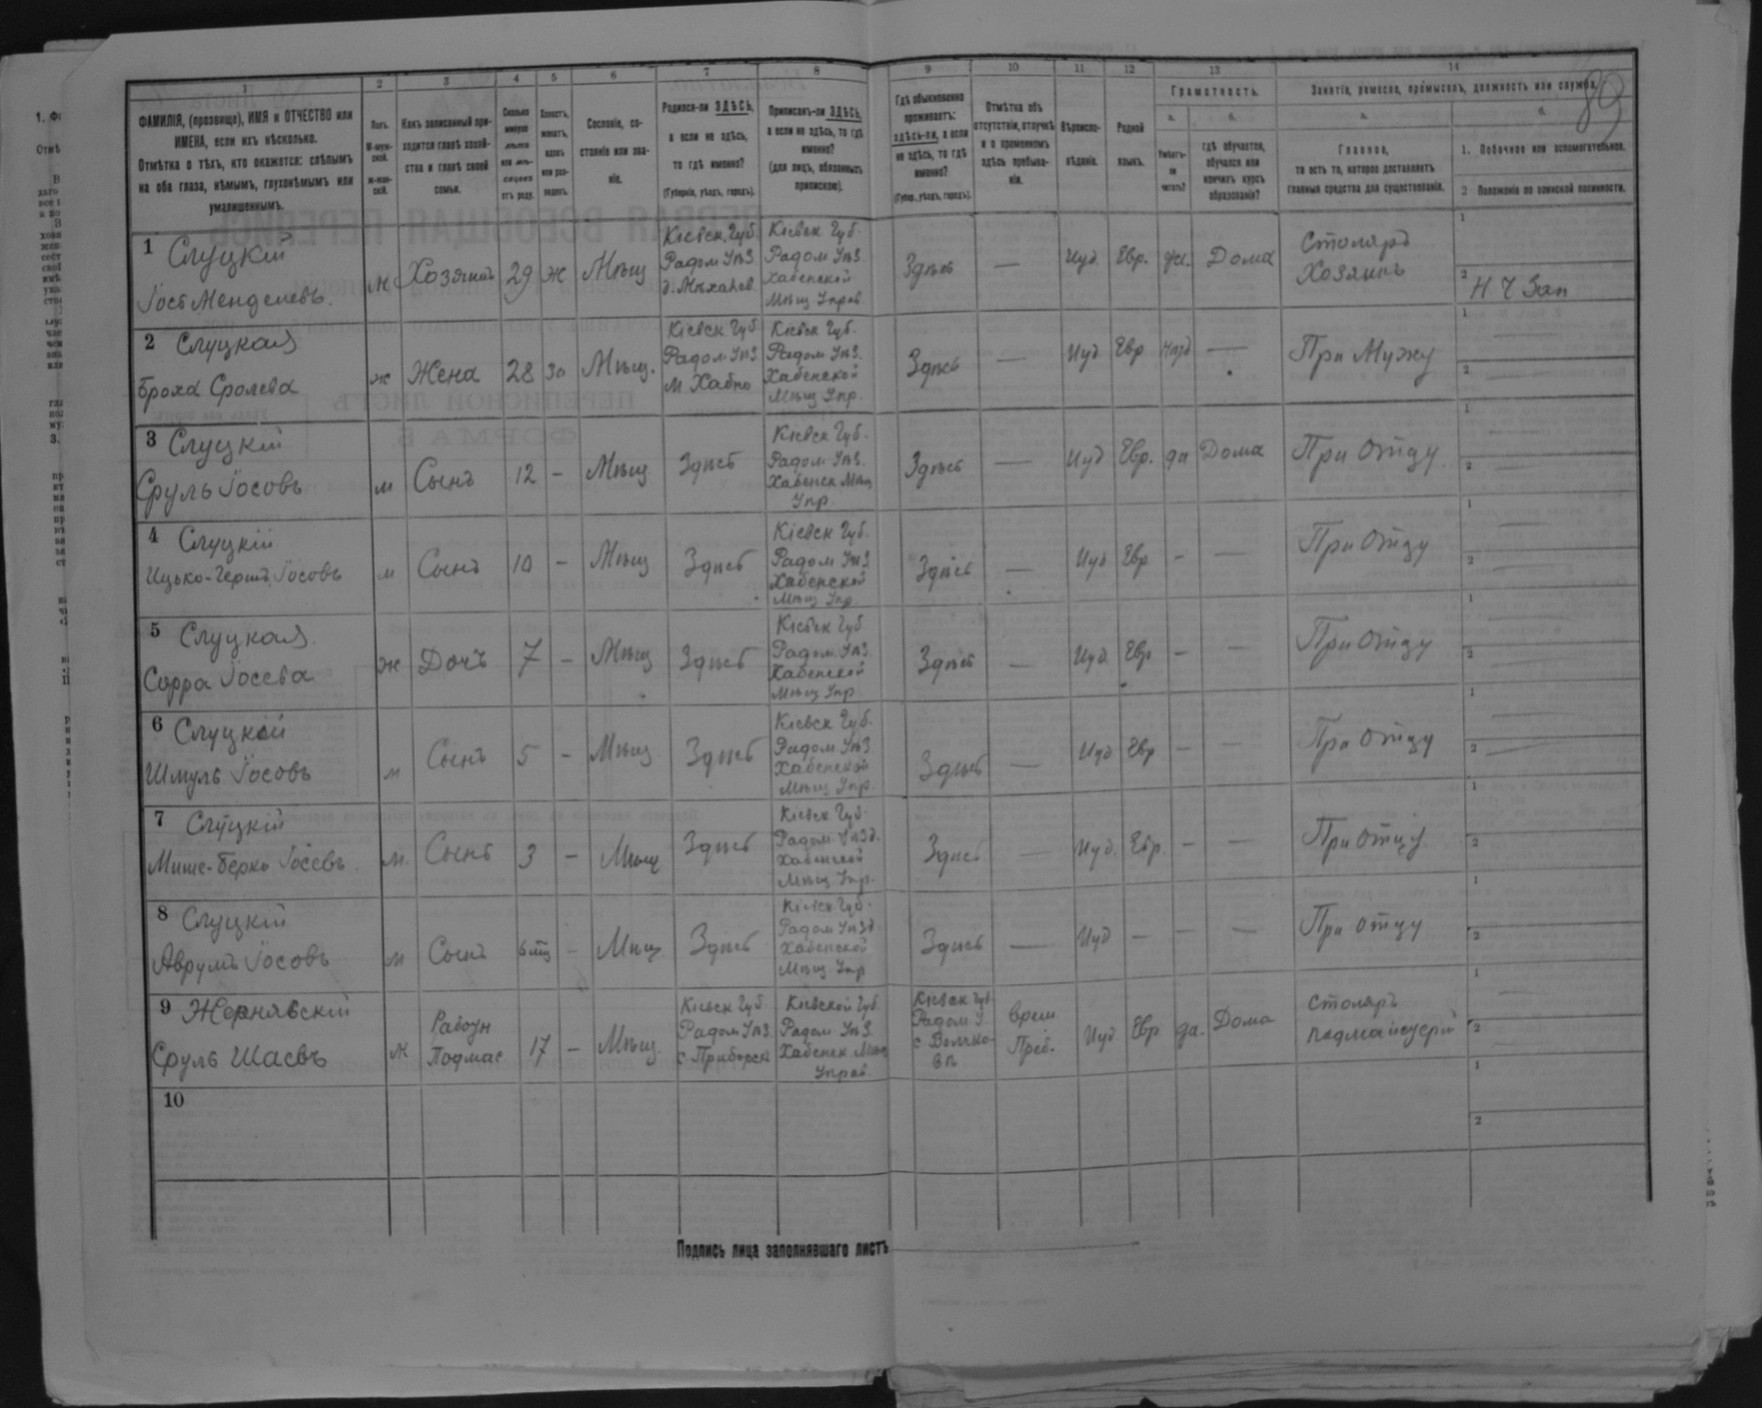 89
1 2 3 4 5 6 7 8 9 10 11 12 13 14
ФАМИЛІЯ, (прозвище), ИМЯ и ОТЧЕСТВО или
ИМЕНА, если ихъ нѣсколько.
Отмѣтка о тѣхъ, кто окажется: слѣпымъ
на оба глаза, нѣмымъ, глухонѣмымъ или
умалишеннымъ.
Полъ.
М-муж-
ской.
ж-жен-
скій.
Какъ записанный при-
ходится главѣ хозяй-
ства и главѣ своей
семьи.
Сколько
минуло
лѣтъ
или мѣ-
сяцевъ
отъ роду.
Холостъ,
женатъ,
вдовъ
или раз-
веденъ.
Сословіе, со-
стояніе или зва-
ніе.
Родился-ли ЗДѢСЬ,
а если не здѣсь,
то гдѣ именно?
(Губернія, уѣздъ, городъ).
Приписанъ-ли ЗДѢСЬ,
а если не здѣсь, то гдѣ
именно?
(для лицъ, обязанныхъ
припискою).
Гдѣ обыкновенно
проживаетъ:
здѣсь-ли, а если
не здѣсь, то гдѣ
именно?
(Губер., уѣздъ, городъ).
Отмѣтка объ
отсутствіи, отлучкѣ
и о временномъ
здѣсь пребыва-
ніи.
Вѣроиспо-
вѣданіе.
Родной
языкъ.
Грамотность.
а.
Умѣетъ-
ли
читать?
б.
гдѣ обучается,
обучался или
кончилъ курсъ
образованія?
Занятіе, ремесло, промыселъ, должность или служба.
а.
Главное,
то есть то, которое доставляетъ
главныя средства для существованія.
б.
1. Побочное или вспомогательное.
2 Положеніе по воинской повинности.
1 Слуцкій
Іось Менделевъ.
м
Хозяинъ
29
ж
Мѣщ
Кіевск. Губ.
Радом Уѣз
Кіевск Губ.
Радом Уѣз.
Хабенской
Мѣщ Управ
Здѣсь
—
Иуд.
Евр.
да.
Дома
Столяръ
Хозяинъ
1
2
2 Слуцкая
Броха Сролева
ж
Жена
28
За
Мѣщ.
Кіевск Губ.
Радом Уѣз.
М Хабно
Кіевск Губ.
Радом Уѣз.
Хабенской
Мѣщ Упр.
Здѣсь
—
Иуд
Евр
—
При Мужу
1
2
3 Слуцкій
Сруль Іосовъ
м
Сынъ
12
–
Мѣщ
Здѣсь
Кіевск Губ.
Радом Уѣз.
Хабенск Мѣщ
Упр.
Здѣсь
—
Иуд
Евр.
да
Дома
При Отцу
1
2
4 Слуцкій
Ицько-Гершъ Іосовъ
м
Сынъ
10
–
Мѣщ
Здѣсь
Кіевск Губ.
Радом Уѣз
Хабенской
Мѣщ Упр.
Здѣсь
—
Иуд
Евр
–
—
При Отцу
1
2
5 Слуцкая.
Сорра Іосева
ж
Дочь
7
–
Мѣщ
Здѣсь
Кіевск Губ
Радом. Уѣз.
Хабенской
Мѣщ Упр
Здѣсь
—
Иуд
Евр
–
—
При Отцу
1
2
6 Слуцкій
Шмуль Іосовъ
м
Сынъ
5
–
Мѣщ
Здѣсь
Кіевск Губ.
Радом Уѣз
Хабенской
Мѣщ Упр.
Здѣсь
—
Иуд
Евр
–
—
При Отцу
1
2
7 Слуцкій
Берко Іосевъ.
м.
Сынъ
3
–
Мѣщ
Здѣсь
Кіевск Губ.
Радом. Уѣзд.
Хабенской
Мѣщ Упр.
Здѣсь
—
Иуд.
Евр.
–
—
При Отцу.
1
2
8 Слуцкій
Аврумъ Іосовъ
м
Сынъ
–
Мѣщ
Здѣсь
Кіевск Губ.
Радом Уѣзд
Хабенской
Мѣщ Упр
Здѣсь
—
Иуд
—
–
—
При отцу
1
2
9 Жернявскій
Сруль Шаевъ
м
Подмас
17
–
Мѣщ.
Кіевск Губ.
Радом Уѣз
с. Приборск
Кіевской Губ.
Радом Уѣз.
Хабенск Мѣщ
Управ.
Кіевск Губ
Радом У
Врем
Преб.
Иуд
Евр
да.
Дома
Столяръ
подмайстерій
1
2
10
1
2
Подпись лица заполнявшаго листъ